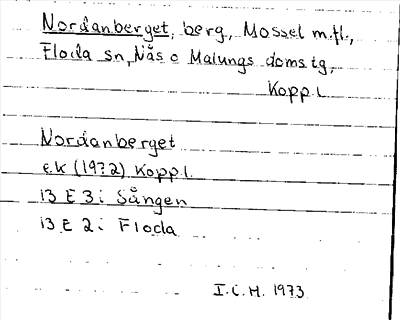 Nordanberget, berg, Mossel m.fl.,
Floda sn, Nås o Malungs domstg,
Kopp. l.
Nordanberget
e.k (1972) Kopp.l.
13 E 3i Sången
13 E 2i Floda
I.C.M. 1973